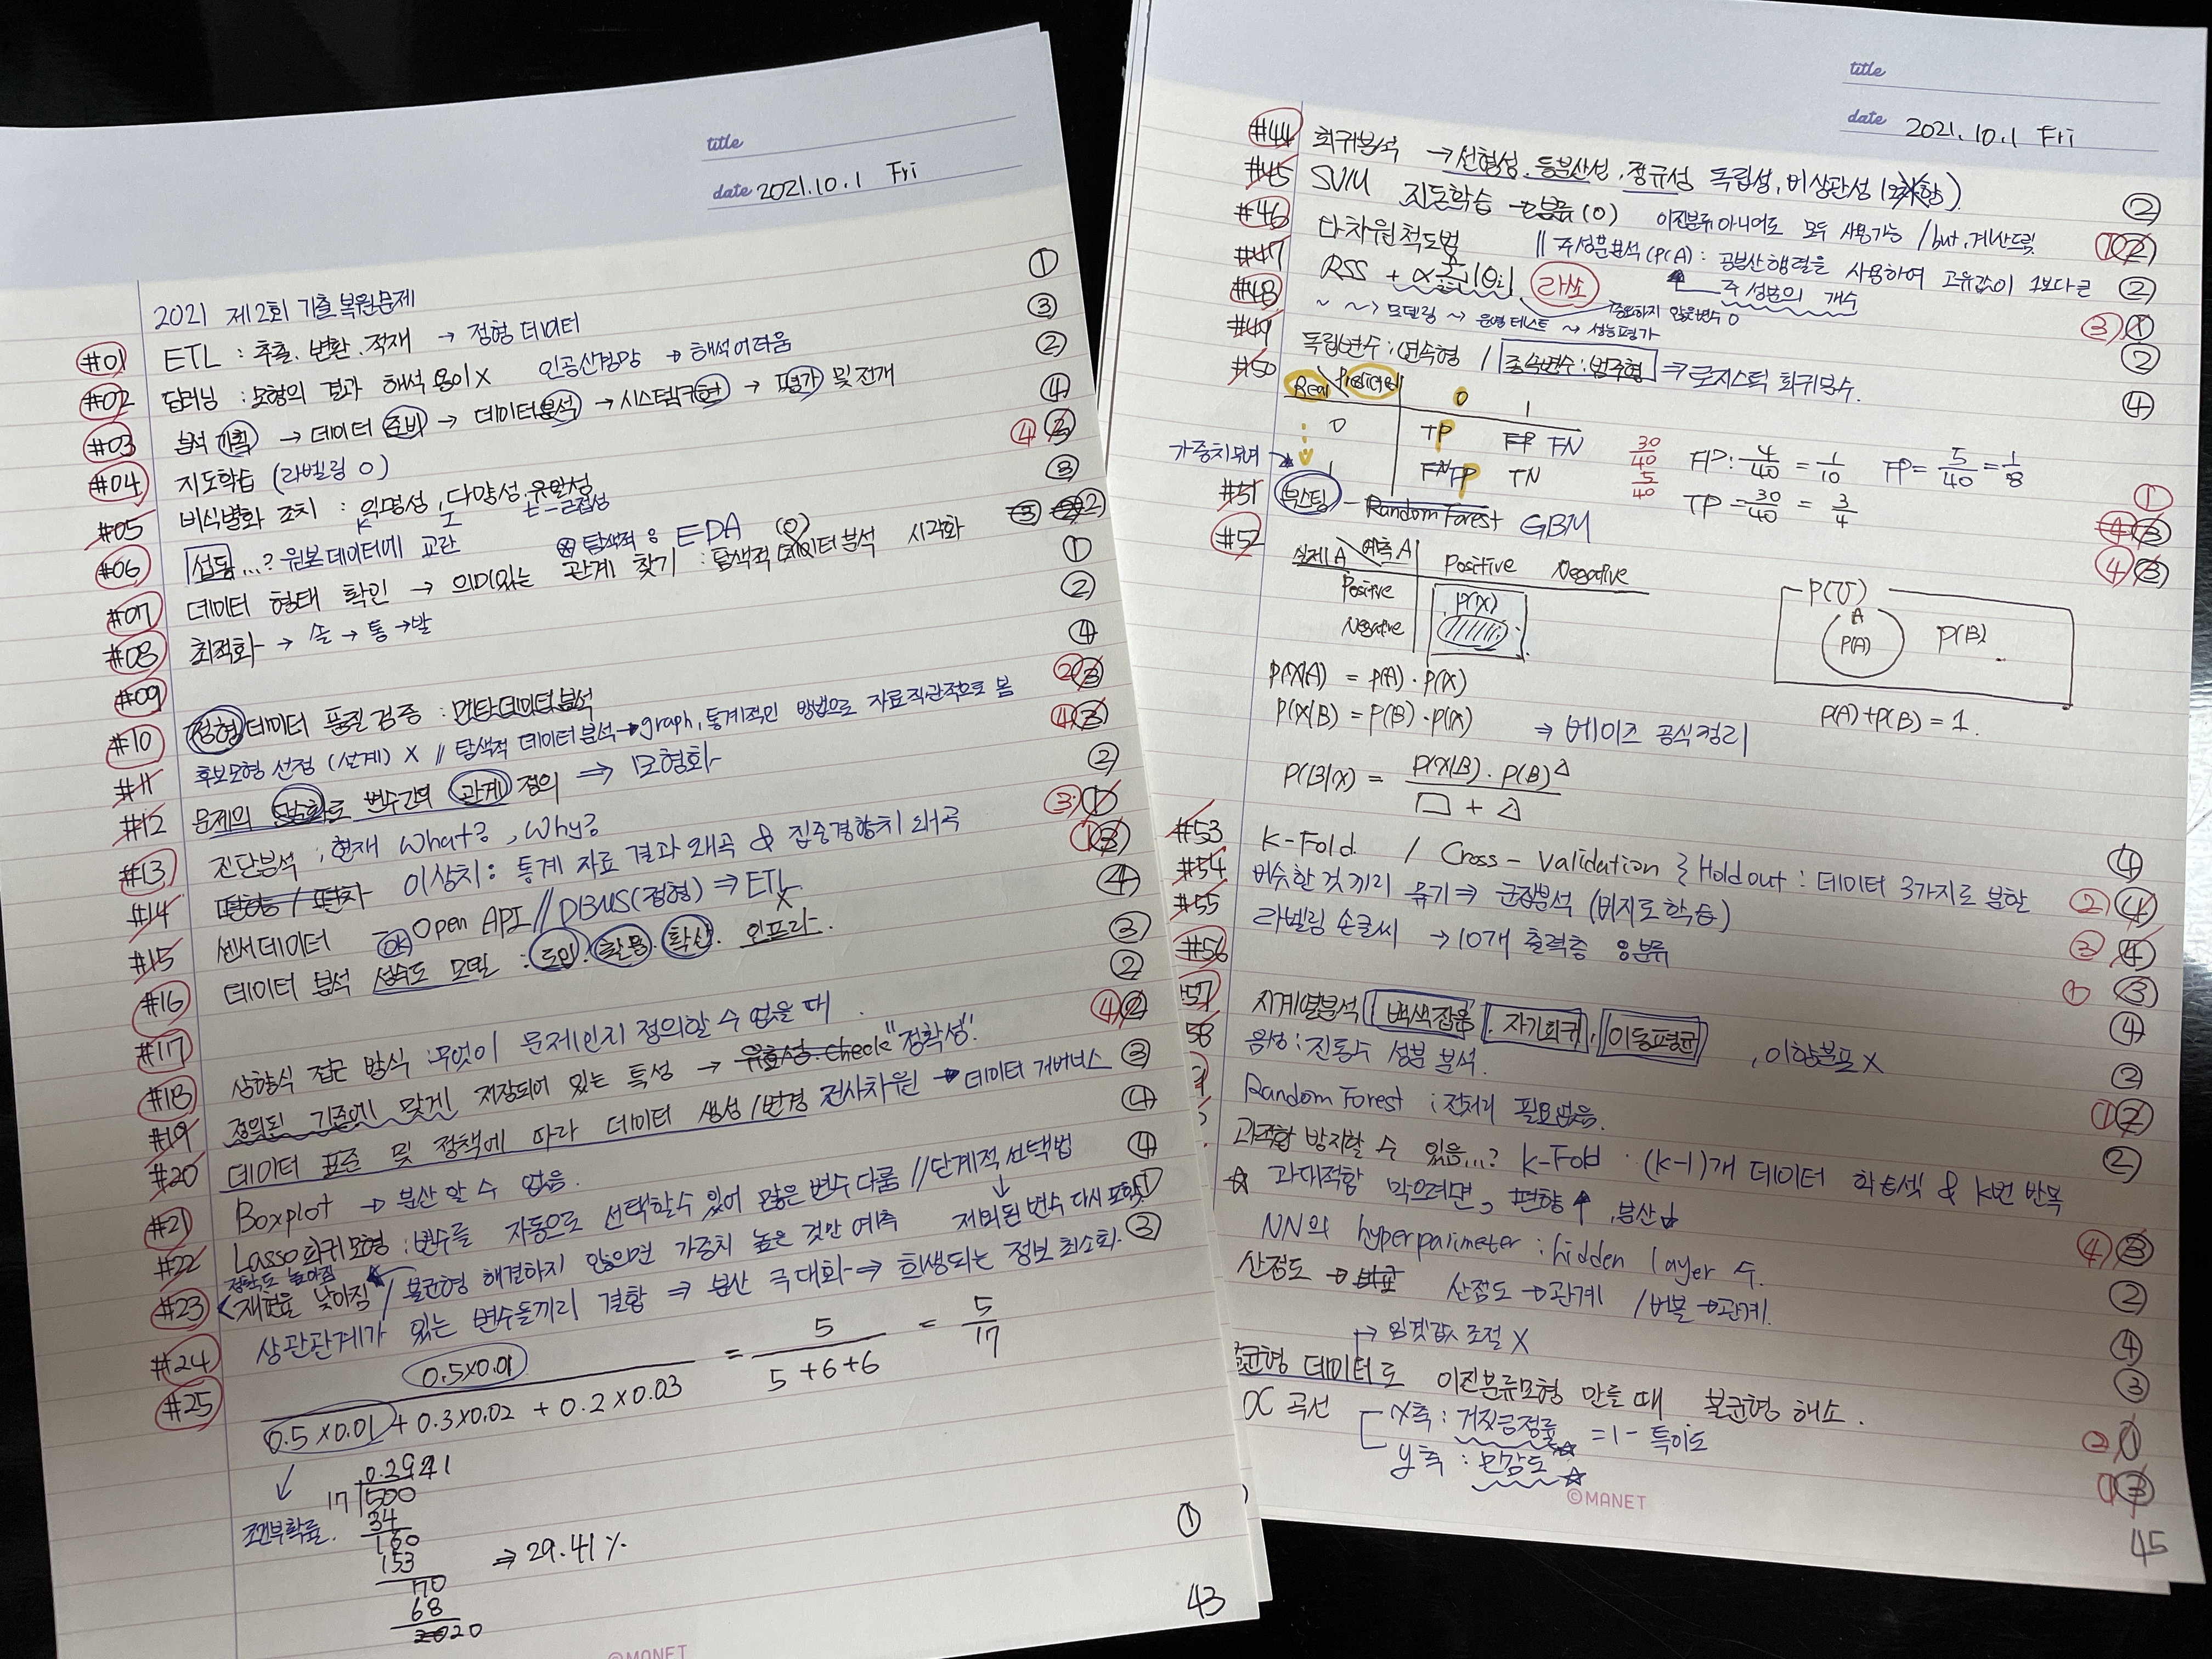 title
date 2021.10.1 Fri
2021 제2회 기출복원문제 ①
#01 ETL : 추출. 변환. 적재 → 정형 데이터 ③
#02 딥러닝 : 모형의 결과 해석 용이 X 인공신경망 → 해석 어려움 ②
#03 분석 기획 → 데이터 준비 → 데이터 분석 → 시스템 구현 → 평가 및 전개 ④
#04 지도학습 (라벨링 O) ④
#05 비식별화 조치 : 익명성, 다양성, 유일성 ③
k l t-근접성
#06 섭동...? 원본데이터에 교란 ⊗ 탐색적 : EDA
#07 데이터 형태 확인 → 의미있는 관계 찾기 : 탐색적 데이터 분석 시각화 ①
#08 최적화 → 솔 → 통 → 발 ②
#09 ④
#10 정형 데이터 품질 검증 : 메타데이터분석 ②
#11 후보모형 선정 (설계) X // 탐색적 데이터 분석 → graph, 통계적인 방법으로 자료 직관적으로 봄 ④
#12 문제의 단순화로 변수간의 관계 정의 ⇒ 모형화 ②
#13 진단분석 : 현재 What? , Why? ③①
#14 이상치 : 통계 자료 결과 왜곡 & 집중경향치 왜곡 ①
#15 센서데이터 - OK Open API // DBMS(정형) ⇒ ETL X ④
#16 데이터 분석 성숙도 모델 : 도입. 활용. 확산. 인프라. ③
②
#17 상향식 접근 방식 : 무엇이 문제인지 정의할 수 없을 때 ④②
#18 정의된 기준에 맞게 저장되어 있는 특성 → 유효성. check "정확성". ③
#19 데이터 표준 및 정책에 따라 데이터 생성/변경 전사차원 → 데이터 거버넌스 ④
#20
#21 Boxplot → 분산 알 수 없음. ④
#22 Lasso 회귀모형 : 변수를 자동으로 선택할 수 있어 많은 변수 다룸 // 단계적 선택법 ①
↓ 제외된 변수 다시 포함
정확도 높아짐
#23 < 재현율 낮아짐 / 불균형 해결하지 않으면 가중치 높은 것만 예측 ③
#24 상관관계가 있는 변수들끼리 결합 ⇒ 분산 극대화 ⇒ 희생되는 정보 최소화.
#25 0.5x0.01 = 5 = 5
0.5x0.01 + 0.3x0.02 + 0.2x0.03 5+6+6 17
0.2941
17 500
34
160
153
70
68
2020
조건부확률. ⇒ 29.41% ①
43
©MANET
title
date 2021.10.1 Fri
#44 회귀분석 → 선형성. 등분산성. 정규성 독립성, 비상관성 ②
#45 SVM 지도학습 → 분류(O) 이진분류 아니어도 모두 사용가능 / but, 계산느림 ①②
#46 다차원척도법 // 주성분분석(PCA) : 공분산행렬을 사용하여 고유값이 1보다 큰 ②
주성분의 개수
#47 RSS + α Σ|θi| 라쏘 ③①
중요하지 않은변수 0
#48 ~ ~> 모델링 ~> 운영 테스트 ~> 성능평가 ②
#49 독립변수 : 연속형 / 종속변수 : 범주형 ⇒ 로지스틱 회귀분석. ④
#50 Real Predicted 0 1
0 TP FP FN
1 FN FP TN
30/40 5/40 FP: 4/40 = 1/10 FP = 5/40 = 1/8
TP = 30/40 = 3/4 ①
가중치부여
#51 부스팅 - Random Forest GBM ④③
#52 실제A 예측A Positive Negative ④③
Positive P(X)
Negative
P(U)
A
P(A) P(B)
P(X|A) = P(A)·P(X)
P(X|B) = P(B)·P(X) ⇒ 베이즈 공식정리 P(A)+P(B)=1.
P(B|X) = P(X|B)·P(B) △
□ + △
#53 K-Fold / Cross-validation } Holdout : 데이터 3가지로 분할 ④
#54 비슷한 것끼리 묶기 ⇒ 군집분석 (비지도 학습) ②④
#55 라벨링 손글씨 → 10개 출력층 : 분류 ③④
#56 ①③
57 시계열분석 백색잡음. 자기회귀, 이동평균 , 이항분포 X ④
58 음성 : 진동수 성분 분석. ②
Random Forest : 전처리 필요없음. ①②
과적합 방지할 수 있음...? K-Fold · (k-1)개 데이터 학습셋 & K번 반복 ②
☆ 과대적합 막으려면, 편향↑, 분산↓
NN의 hyperparimeter : hidden layer 수. ④③
산점도 → 비교 산점도 → 관계 / 버블 → 관계. ②
→ 임곗값 조절 X ④
균형 데이터도 이진분류모형 만들 때 불균형 해소. ③
OC 곡선 x축 : 거짓긍정률 ☆ = 1 - 특이도 ②①
y축 : 민감도 ☆ ①③
©MANET
45